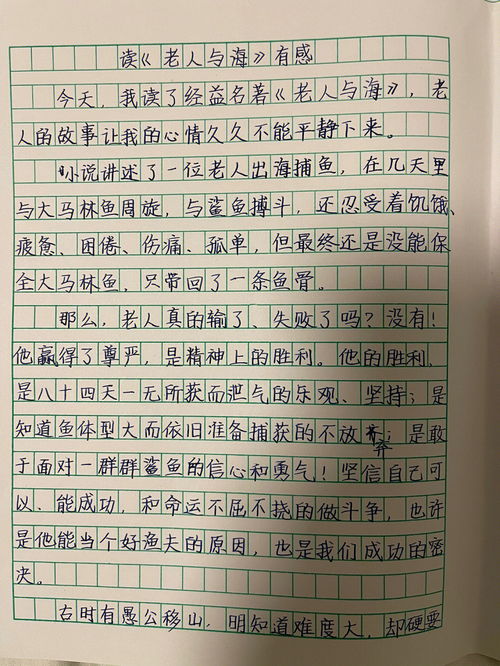 读《老人与海》有感
今天,我读了经益名著《老人与海》,老
人的故事让我的心情久久不能平静下来。
小说讲述了一位老人出海捕鱼,在几天里
与大马林鱼周旋,与鲨鱼搏斗,还忍受着饥饿、
疲惫、困倦、伤痛、孤单,但最终还是没能保
全大马林鱼,只带回了一条鱼骨。
那么,老人真的输了、失败了吗?没有!
他赢得了尊严,是精神上的胜利。他的胜利,
是八十四天一无所获而泄气的乐观、坚持;是
知道鱼体型大而依旧准备捕获的不放弃;是敢
于面对一群群鲨鱼的信心和勇气!坚信自己可
以、能成功,和命运不屈不挠的做斗争,也许
是他能当个好渔夫的原因,也是我们成功的密
决。
古时有愚公移山,明知道难度大,却硬要